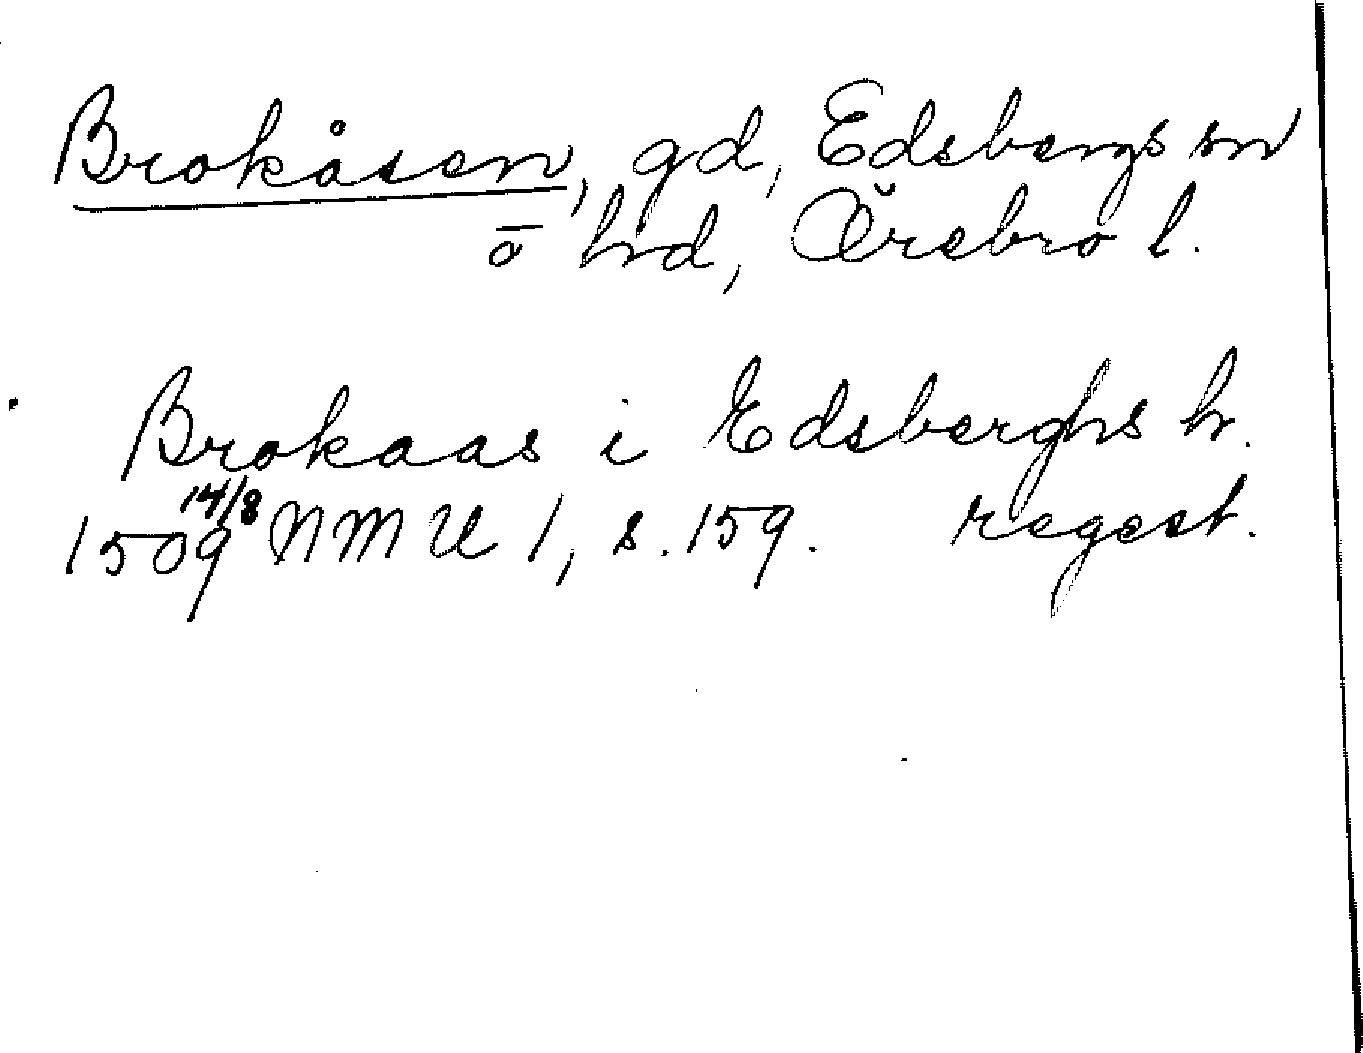 Brokåsen, gd, Edsbergs sn
o hd, Örebro l.
Brokaas i Edsberghs h.
1509 14/8 NMU 1, s. 159. regest.